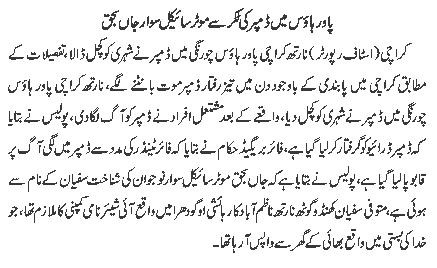 پاور ہاؤس میں ڈمپر کی ٹکر سے موٹر سائیکل سوار جاں بحق
کراچی (اسٹاف رپورٹر) نارتھ کراچی پاور ہاؤس چورنگی میں ڈمپر نے شہری کو کچل ڈالا، تفصیلات کے
مطابق کراچی میں پابندی کے باوجود دن میں تیز رفتار ڈمپر موت بانٹنے لگے، نارتھ کراچی پاور ہاؤس
چورنگی میں ڈمپر نے شہری کو کچل دیا، واقعے کے بعد مشتعل افراد نے ڈمپر کو آگ لگا دی، پولیس نے بتایا
کہ ڈمپر ڈرائیور کو گرفتار کر لیا گیا ہے، فائر بریگیڈ حکام نے بتایا کہ فائر ٹینڈر کی مدد سے ڈمپر میں لگی آگ پر
قابو پالیا گیا ہے، پولیس نے بتایا ہے کہ جاں بحق موٹر سائیکل سوار نوجوان کی شناخت سفیان کے نام سے
ہوئی ہے، متوفی سفیان کھنڈو گوٹھ نارتھ ناظم آباد کا رہائشی او گودھرا میں واقع آئی شیئر نامی کمپنی کا ملازم تھا، جو
خدا کی بستی میں واقع بھائی کے گھر سے واپس آ رہا تھا۔